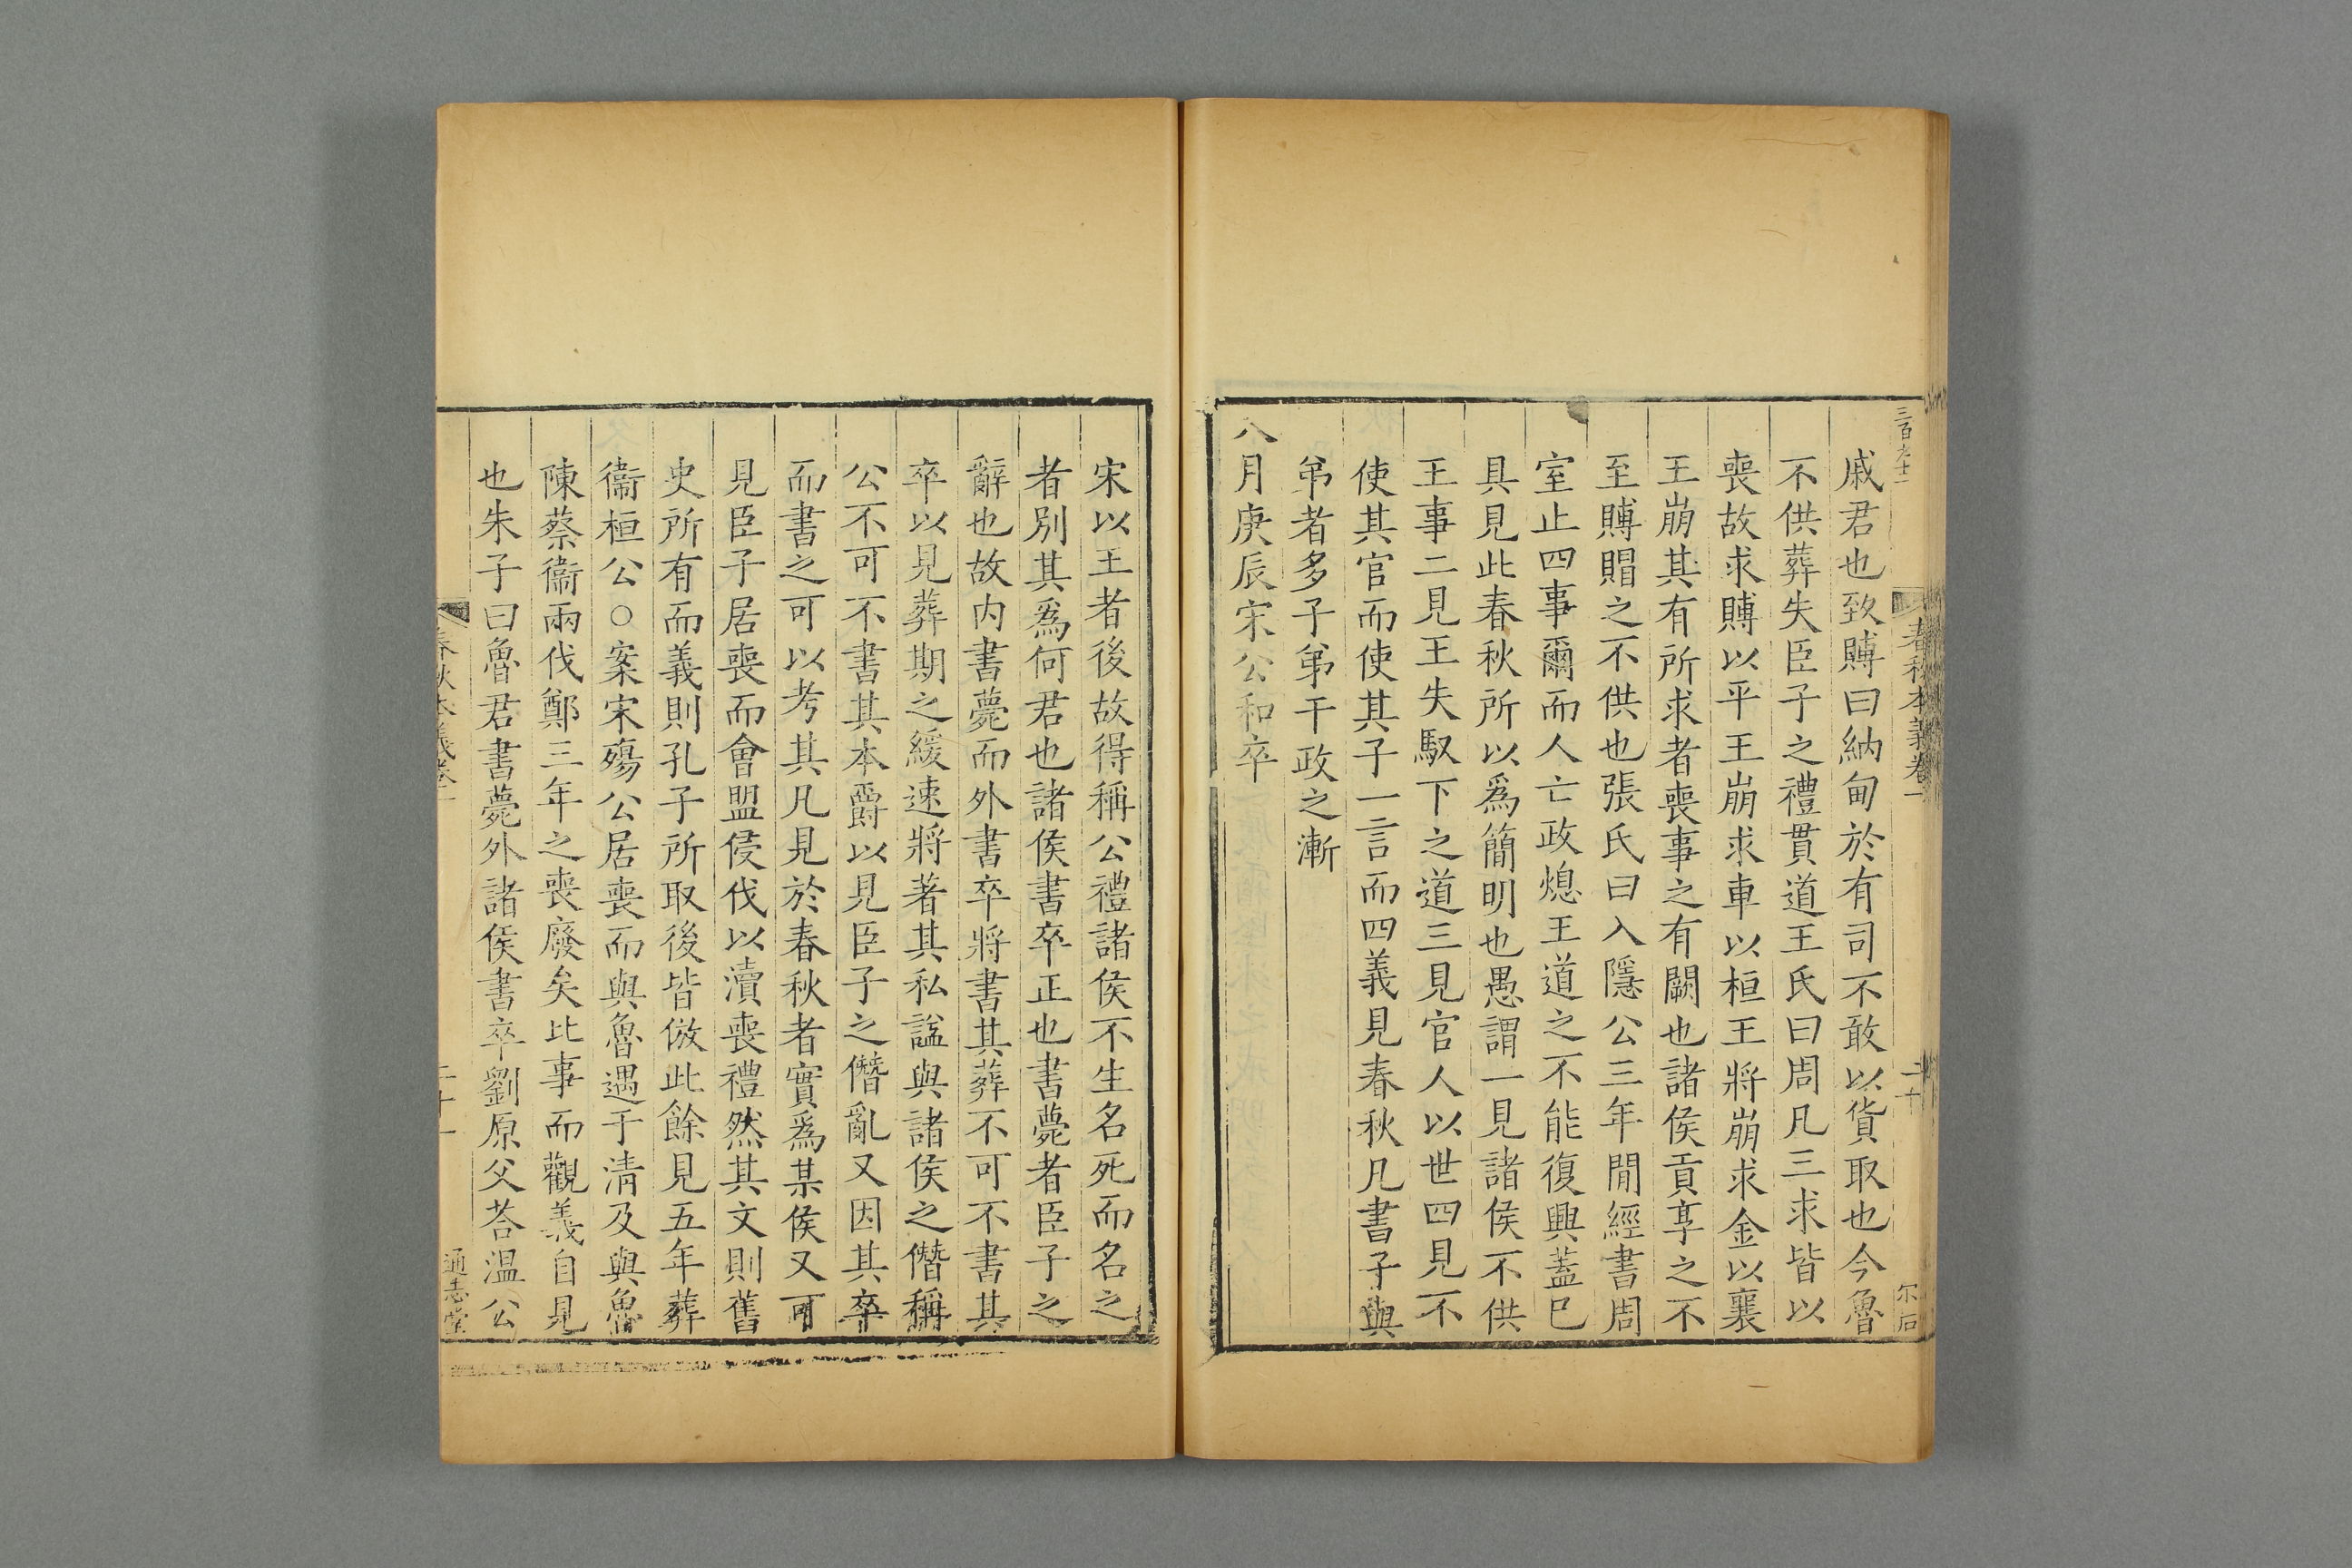 三百九十二
春秋本義卷一
二十
宗石
戚君也致賻曰納甸於有司不敢以貨取也今魯
不供葬失臣子之禮貫道王氏曰周凡三求皆以
喪故求賻以平王崩求車以桓王將崩求金以襄
王崩其有所求者喪事之有闕也諸侯貢享之不
至賻賵之不供也張氏曰入隱公三年間經書周
室止四事爾而人亡政熄王道之不能復興蓋已
具見此春秋所以爲簡明也愚謂一見諸侯不供
王事二見王失馭下之道三見官人以世四見不
使其官而使其子一言而四義見春秋凡書子與
弟者多子弟干政之漸
八月庚辰宋公和卒
宋以王者後故得稱公禮諸侯不生名死而名之
者別其爲何君也諸侯書卒正也書薨者臣子之
辭也故内書薨而外書卒將書其葬不可不書其
卒以見葬期之緩速將著其私謚與諸侯之僭稱
公不可不書其本爵以見臣子之僭亂又因其卒
而書之可以考其凡見於春秋者實爲某侯又可
見臣子居喪而會盟侵伐以瀆喪禮然其文則舊
史所有而義則孔子所取後皆倣此餘見五年葬
衞桓公○案宋殤公居喪而與魯遇于清及與魯
陳蔡衞兩伐鄭三年之喪廢矣比事而觀義自見
也朱子曰魯君書薨外諸侯書卒劉原父荅温公
春秋本義卷一
二十一
通志堂